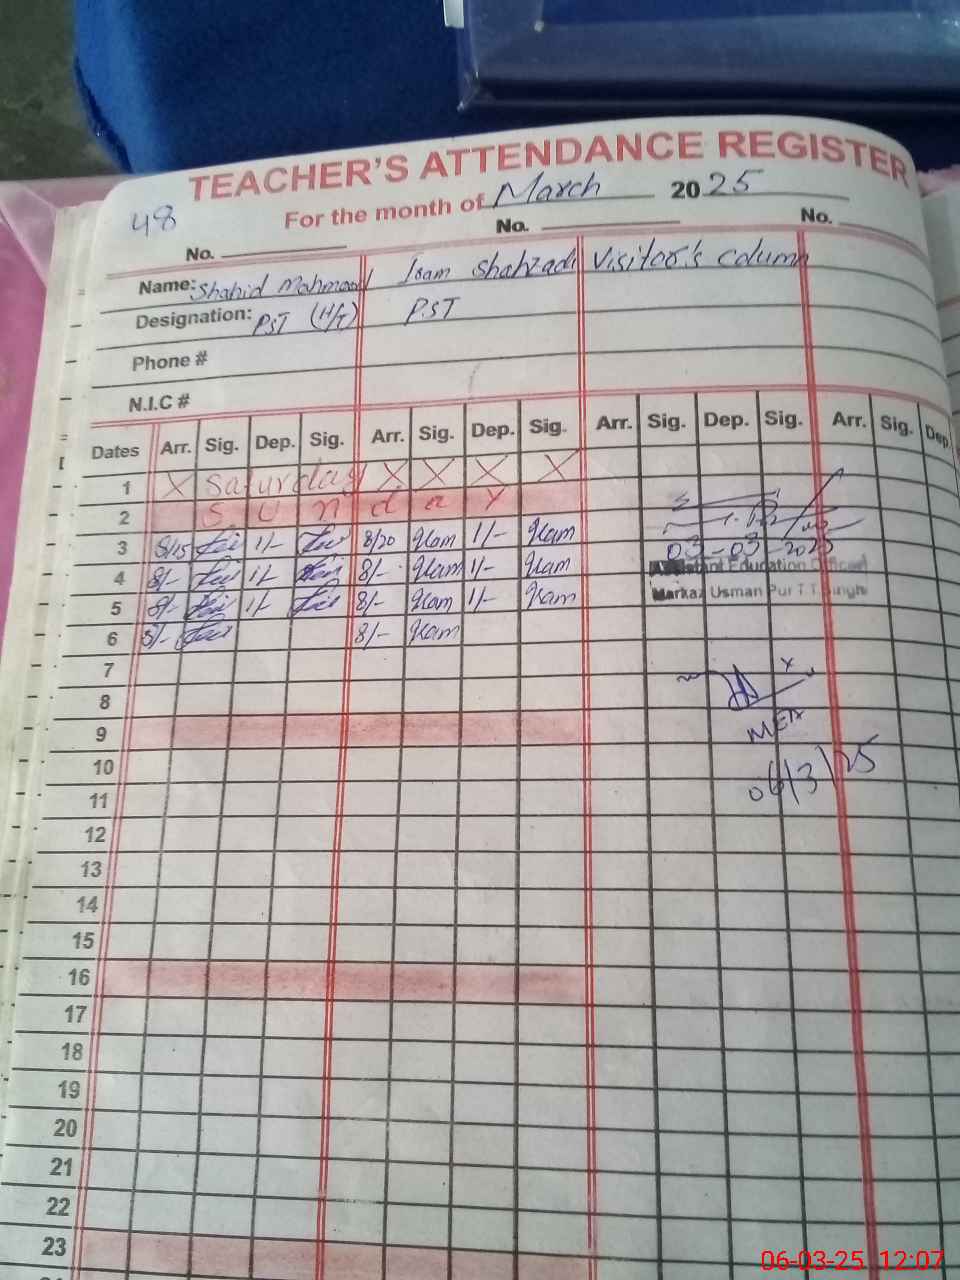 TEACHER'S ATTENDANCE REGISTER
48 For the month of March 2025
No. No. No.
Name: Shahid Mahmood Iram Shahzadi Visitor's column
Designation: PST (H/T) P.ST
Phone #
N.I.C #
Dates Arr. Sig. Dep. Sig. Arr. Sig. Dep. Sig. Arr. Sig. Dep. Sig. Arr. Sig. Dep
1 X Saturday X X X X
2 S U n d a y
3 8/15 1/- 8/20 1/-
03-03-2025
4 8/- 1/- 8/- 1/-
Assistant Education Officer
5 8/- 1/- 8/- 1/-
Markaz Usman Pur T.T.Singh
6 8/- 8/-
7
8
9
MEA
10
06/3/25
11
12
13
14
15
16
17
18
19
20
21
22
23
06-03-25 12:07